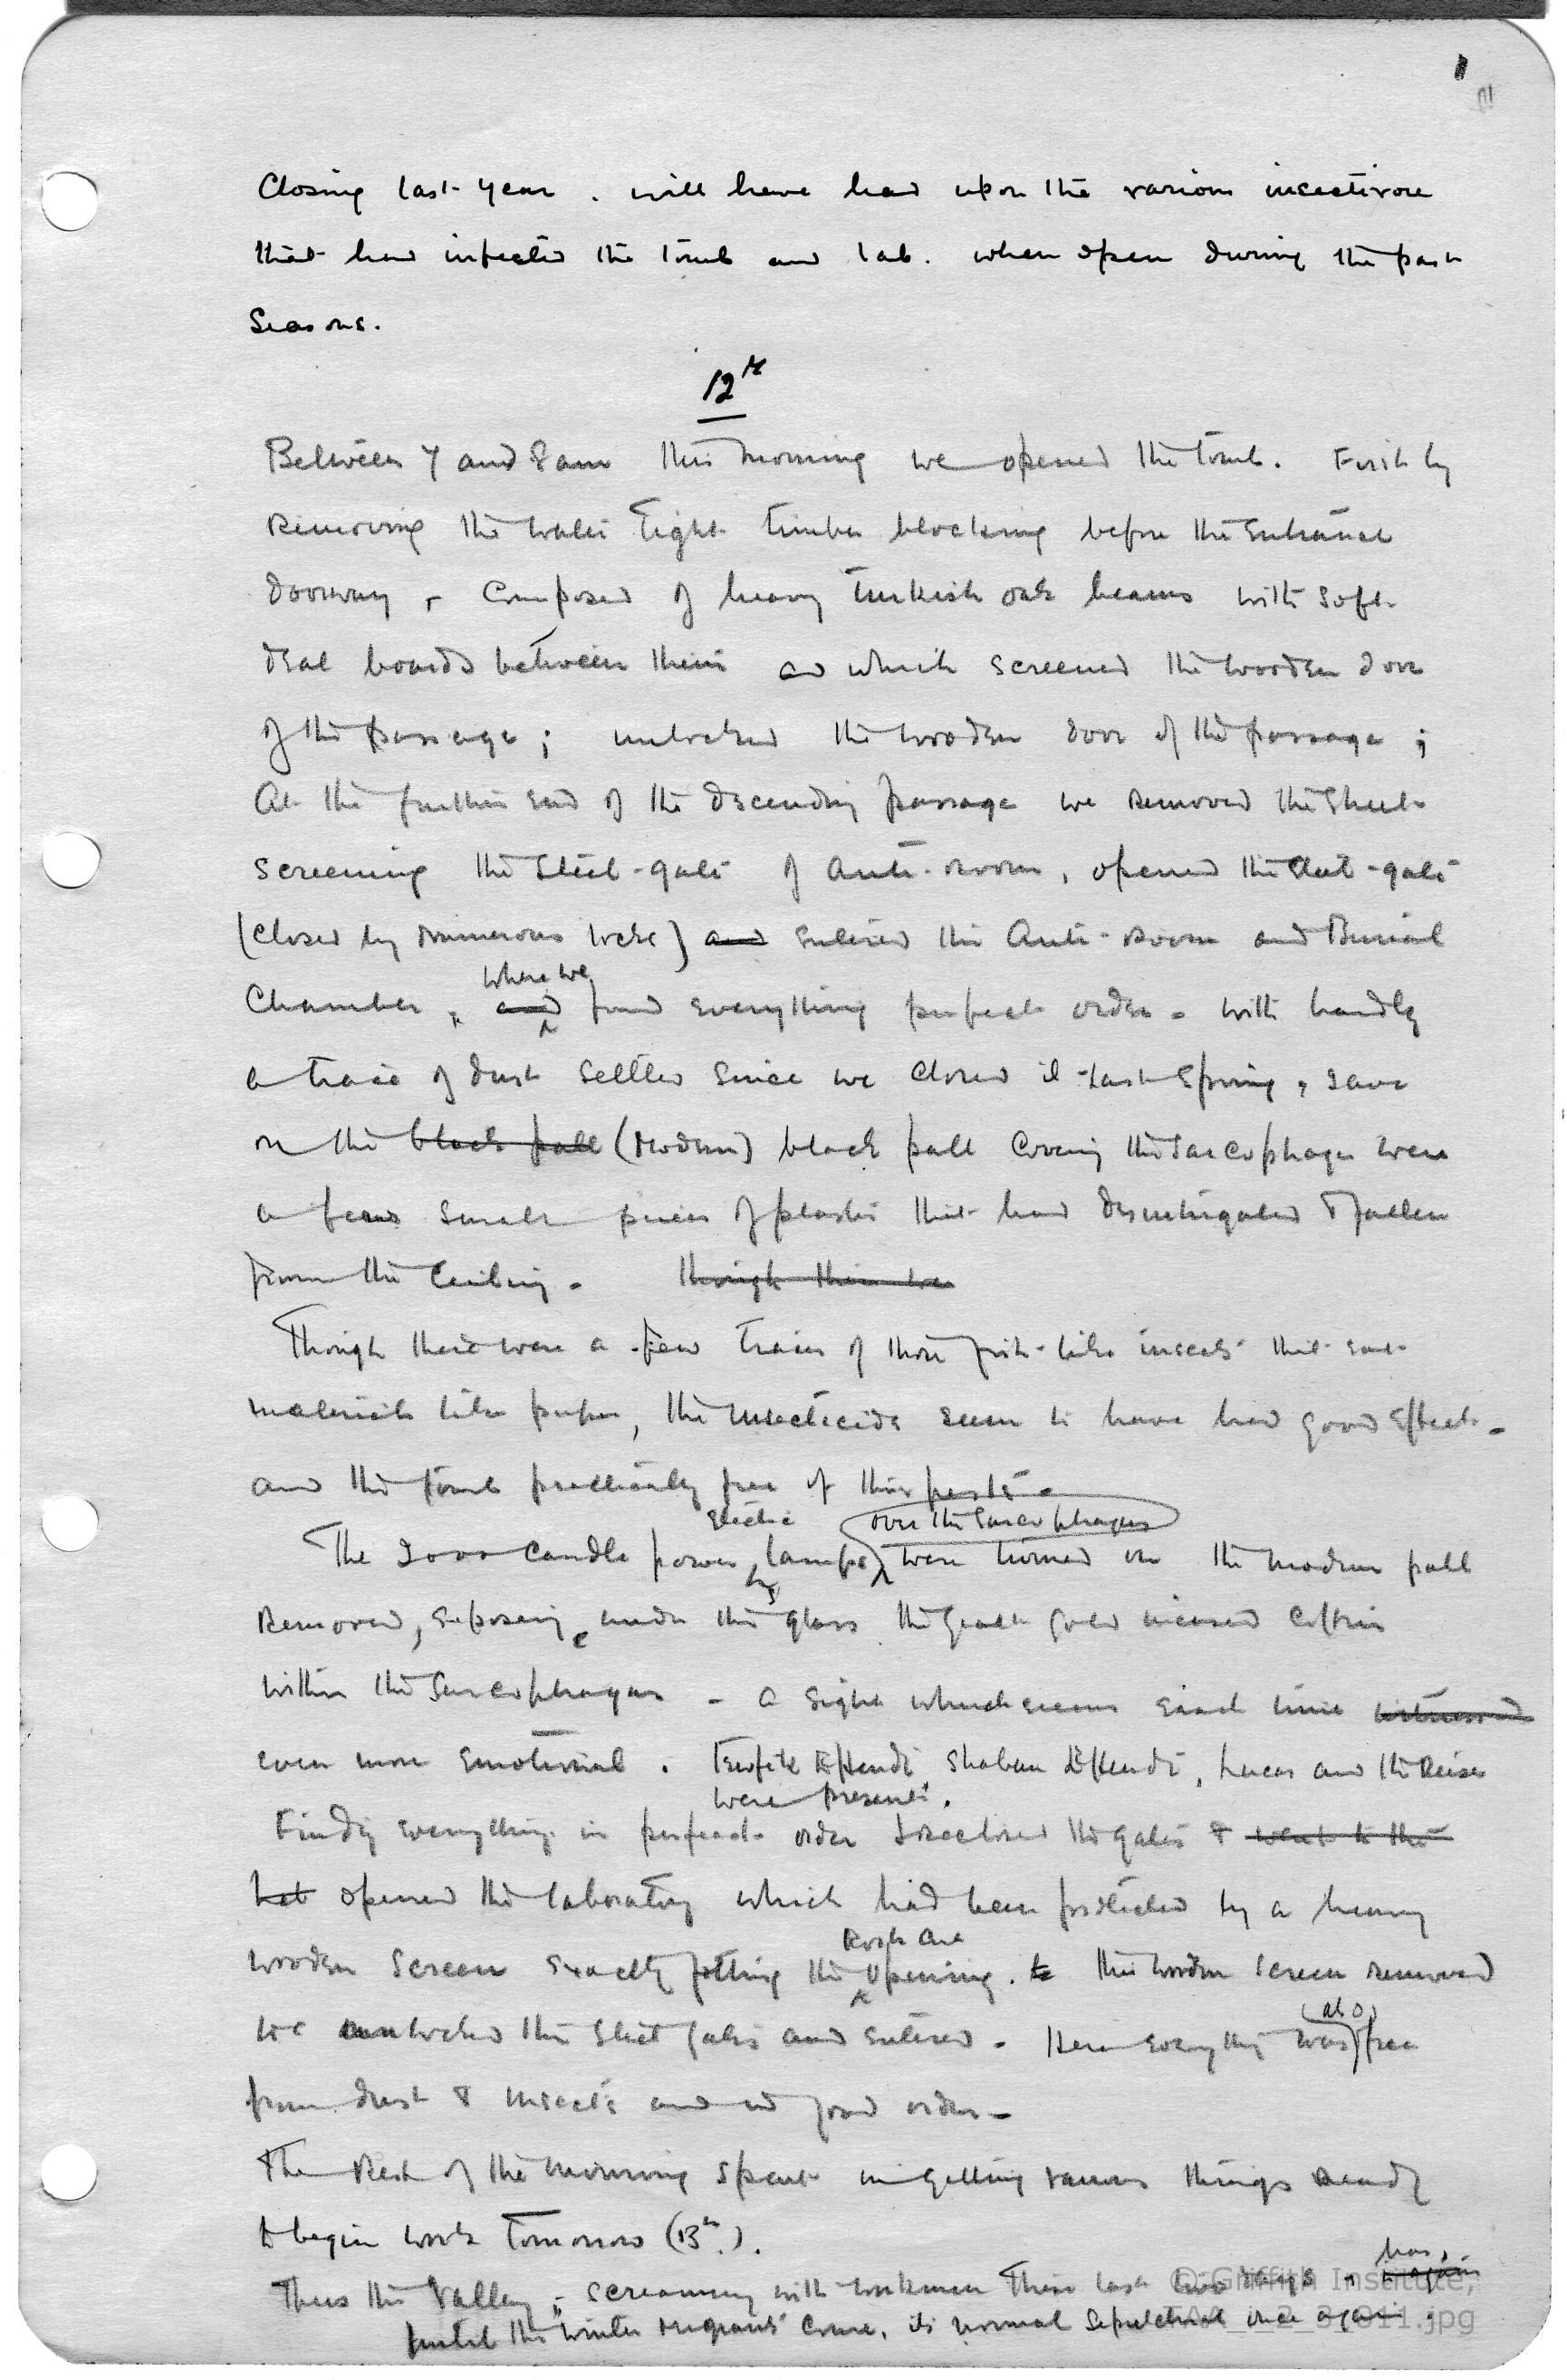 closing last year. will have had upon the various insectivore
that had infected the tomb and lab. when open during the past
seasons.
12th
Between 7 and 8 am this morning we opened the tomb. First by
removing the water tight timber blocking before the entrance
doorway - composed of heavy Turkish oak beams with soft
deal boards between them and which screened the wooden door
of the passage; unlocked the wooden door of the passage;
At the further end of the descending passage we removed the sheet
screening the steel-gate of Ante-room, opened the steel-gate
(closed by numerous locks) and entered the Ante-Room and Burial
where we
Chamber, and found everything perfect order - with hardly
a trace of dust settled since we closed it last spring, save
on the black pall (modern) black pall covering the sarcophagus were
a few small pieces of plaster that had disintegrated & fallen
from the ceiling. though there were
Though there were a few traces of those fish-like insects that eat
materials like paper, the insecticide seem to have had good effect -
and the tomb practically free of these pests.
Electric over the sarcophagus
The 2000 candle power lamps were turned on the modern pall
removed, exposing under the glass the great gold incased coffin
within the sarcophagus - a sight which seems each time witnessed
even more emotional. Tewfik Effendi, Shaban Effendi, Lucas and the Reises
were present.
Finding everything in perfect order I reclosed the gates & went to the
opened the laboratory which had been protected by a heavy
Rock cut
wooden screen exactly fitting the opening. the wooden screen removed
we unlocked the steel gates and entered. Here everything was (also) free
from dust & insects and in good order -
The Rest of the morning spent in getting various things ready
to begin work tomorrow (13th.).
Thus the Valley, screaming with workmen these last two days, has, again
until the winter migrants come, its normal sepulchral once again.
© Griffith Institute,
TAA_i_2_3_011.jpg